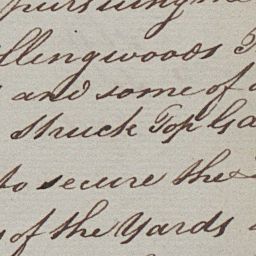 llingwoods
and some of
struck Top Ga
to secure the
of the Yards